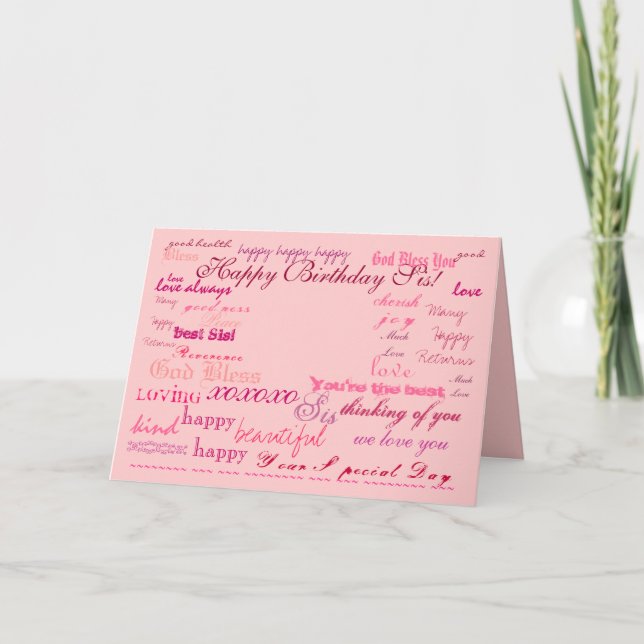 good health
happy happy happy
God Bless You
good
Bless
Happy Birthday Sis!
love
love always
love
Many
good ness
cherish
Many
Peace
joy
Happy
best Sis!
Much
Happy
Returns
Reverence
Love
Returns
God Bless
love
Much
You're the best
Love
Loving
xoxoxo
Sis
thinking of you
kind
happy
beautiful
we love you
happy
Your Special Day